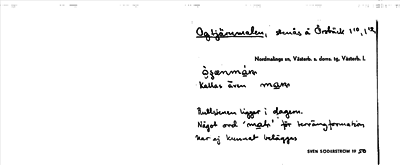 Ogtjärnmalen, stenås å Örsbäck 1¹⁰, 1¹²
Nordmalings sn, Västerb. s. doms. tg, Västerb. l.
Kallas även
Rullstenen ligger i dagen.
Något ord 'mal' för terrängformation
har ej kunnat beläggas
SVEN SÖDERSTRÖM 19 50